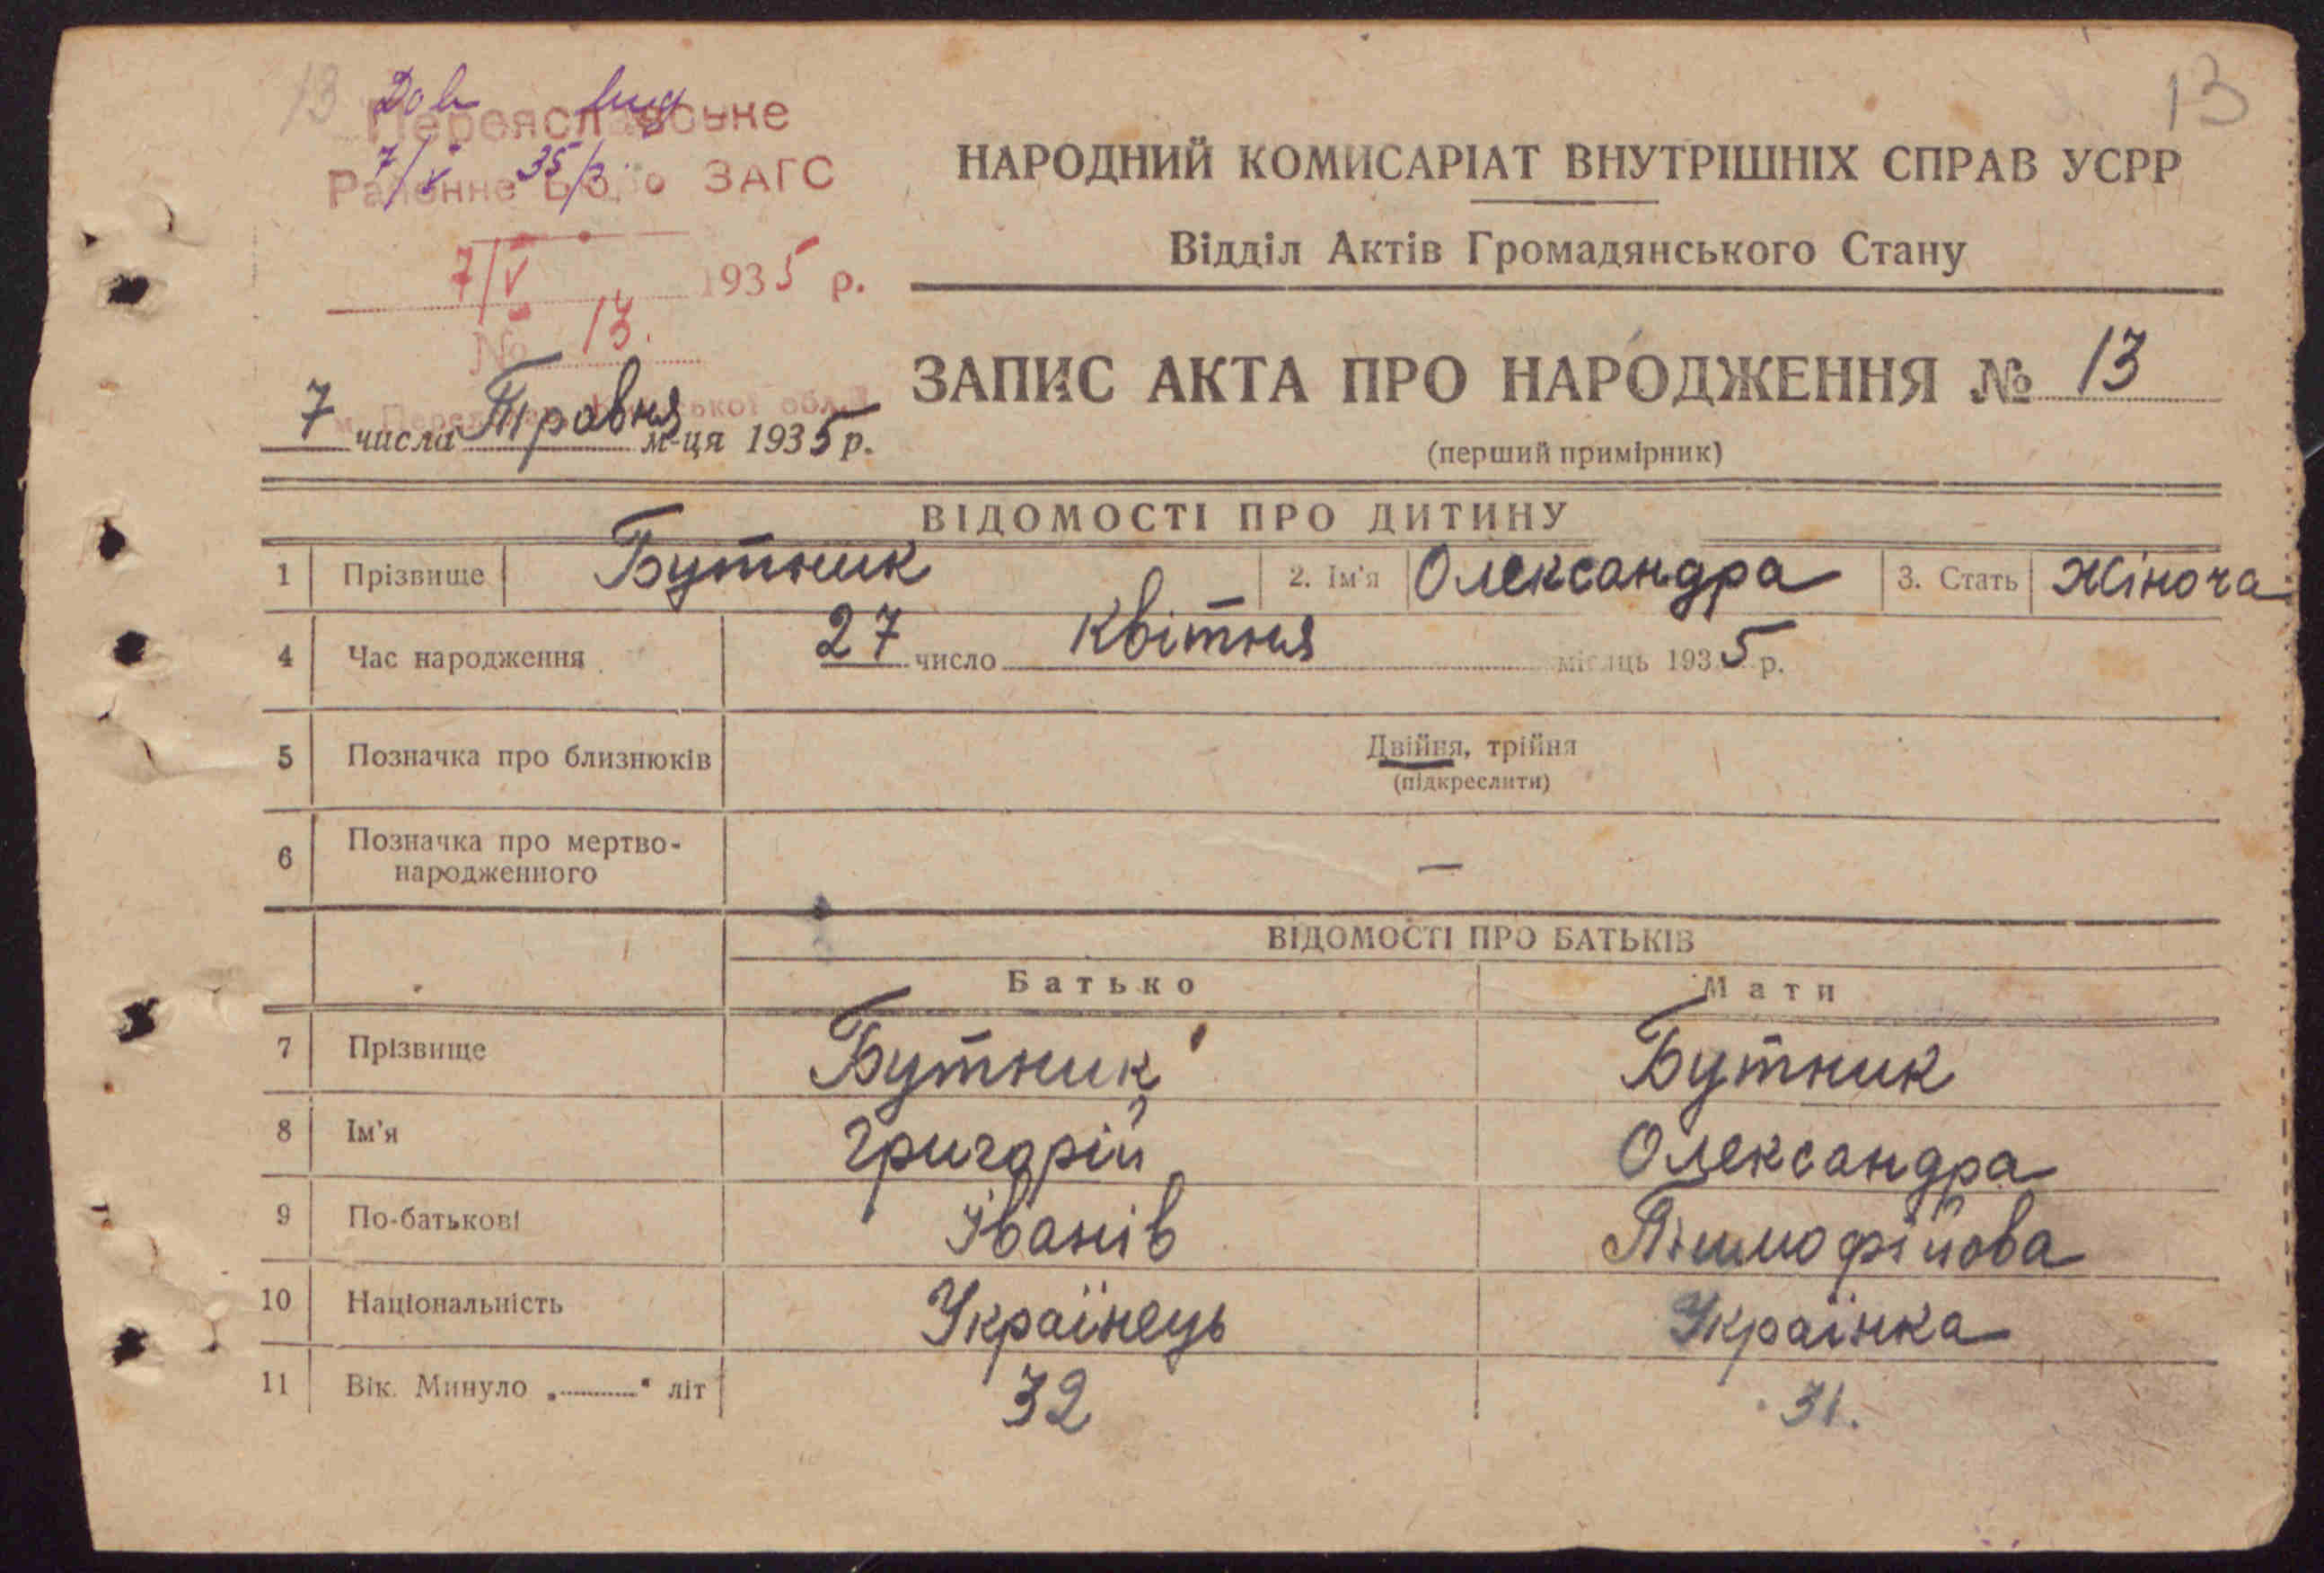 13
Дов вид
Переяславське
7/V 35 р.
Районне Бюро ЗАГС
7/V 1935 р.
№ 13.
м. Переяслав Київської обл.
7 числа Травня м-ця 1935 р.
13
НАРОДНИЙ КОМИСАРІАТ ВНУТРІШНІХ СПРАВ УСРР
Відділ Актів Громадянського Стану
ЗАПИС АКТА ПРО НАРОДЖЕННЯ № 13
(перший примірник)
ВІДОМОСТІ ПРО ДИТИНУ
1 Прізвище Бутник 2. Ім'я Олександра 3. Стать Жіноча
4 Час народження 27 число Квітня місяць 1935 р.
5 Позначка про близнюків Двійня, трійня
(підкреслити)
6 Позначка про мертво-
народженного —
ВІДОМОСТІ ПРО БАТЬКІВ
Батько Мати
7 Прізвище Бутник Бутник
8 Ім'я Григорій Олександра
9 По-батькові Іванів Тимофійова
10 Національність Українець Українка
11 Вік. Минуло „ " літ 32 31.